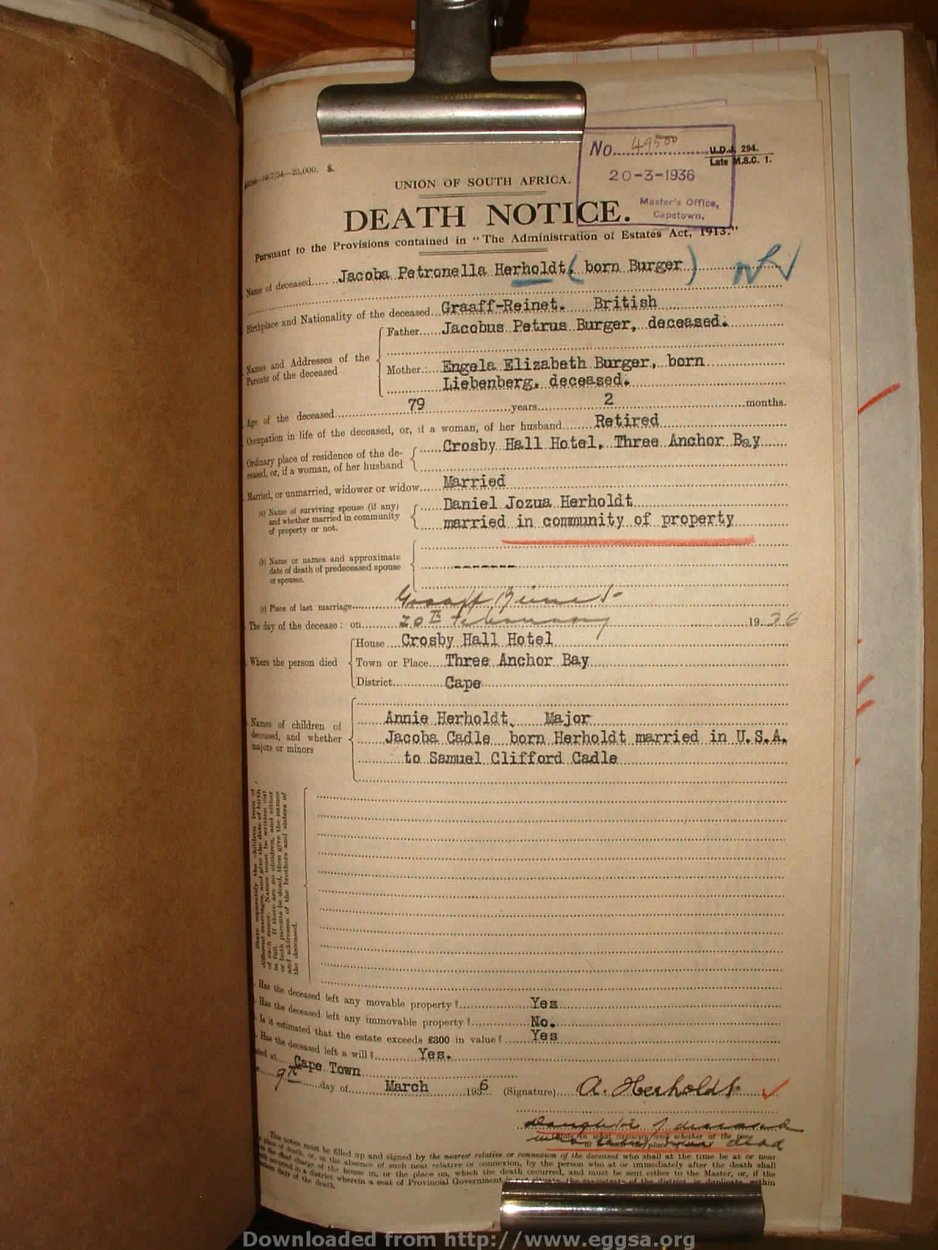 No. 49500
U.D.J. 294.
Late M.S.C. 1.
20-3-1936
Master's Office,
Capetown.
—25,000. S.
UNION OF SOUTH AFRICA.
DEATH NOTICE.
Pursuant to the Provisions contained in "The Administration of Estates Act, 1913."
Name of deceased Jacoba Petronella Herholdt (born Burger)
Birthplace and Nationality of the deceased Graaff-Reinet. British
Names and Addresses of the Parents of the deceased
Father Jacobus Petrus Burger, deceased.
Mother Engela Elizabeth Burger, born
Liebenberg, deceased.
Age of the deceased 79 years 2 months.
Occupation in life of the deceased, or, if a woman, of her husband Retired
Ordinary place of residence of the de-
ceased, or, if a woman, of her husband Crosby Hall Hotel, Three Anchor Bay
Married, or unmarried, widower or widow Married
(a) Name of surviving spouse (if any) Daniel Jozua Herholdt
and whether married in community
of property or not. married in community of property
(b) Name or names and approximate
date of death of predeceased spouse -------
or spouses.
(c) Place of last marriage Graaff Reinet
The day of the decease: on 20th February 1936
Where the person died
House Crosby Hall Hotel
Town or Place Three Anchor Bay
District Cape
Names of children of
deceased, and whether
majors or minors
Annie Herholdt, Major
Jacoba Cadle born Herholdt married in U.S.A.
to Samuel Clifford Cadle
State separately the children born of
different marriages, and give the date of birth
of each minor. Names must be written out
in full. If there are no children, and either
or both parents be dead, then give the names
and addresses of the brothers and sisters of
the deceased.
Has the deceased left any movable property? Yes
Has the deceased left any immovable property? No.
Is it estimated that the estate exceeds £300 in value? Yes
Has the deceased left a will? Yes.
Dated at Cape Town
9th day of March 1936 (Signature) A. Herholdt
Daughter of deceased
dead
This notice must be filled up and signed by the nearest relative or connexion of the deceased who shall at the time be at or near
place of death, or, in the absence of such near relative or connexion, by the person who at or immediately after the death shall
the chief charge of the house in, or the place on, which the death occurred, and must be sent either to the Master, or, if the
occurred in a district wherein a seat of Provincial Government is the magistrate of the district, in duplicate within
days of the death.
Downloaded from http://www.eggsa.org